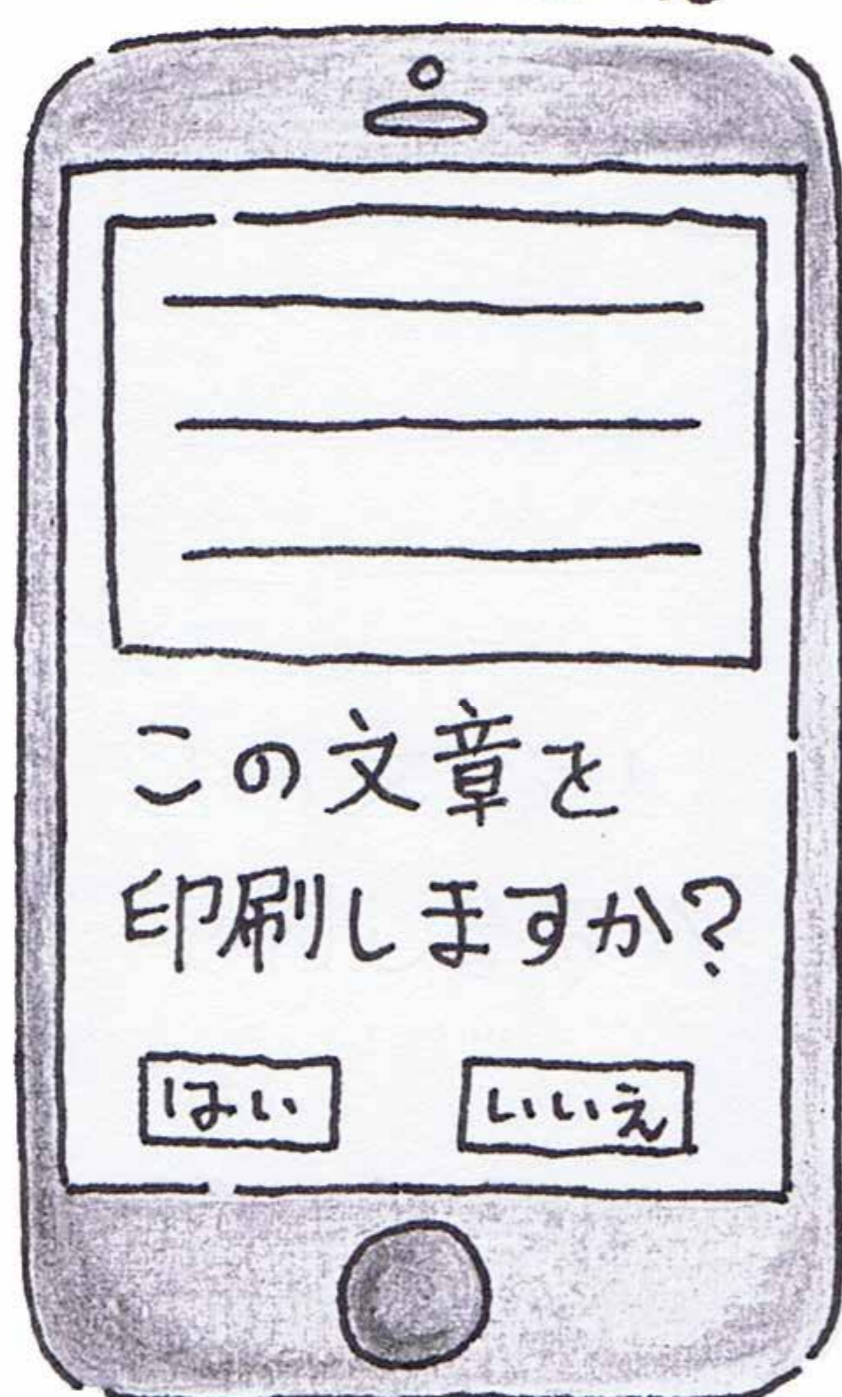 この文章を
印刷しますか?
はい いいえ